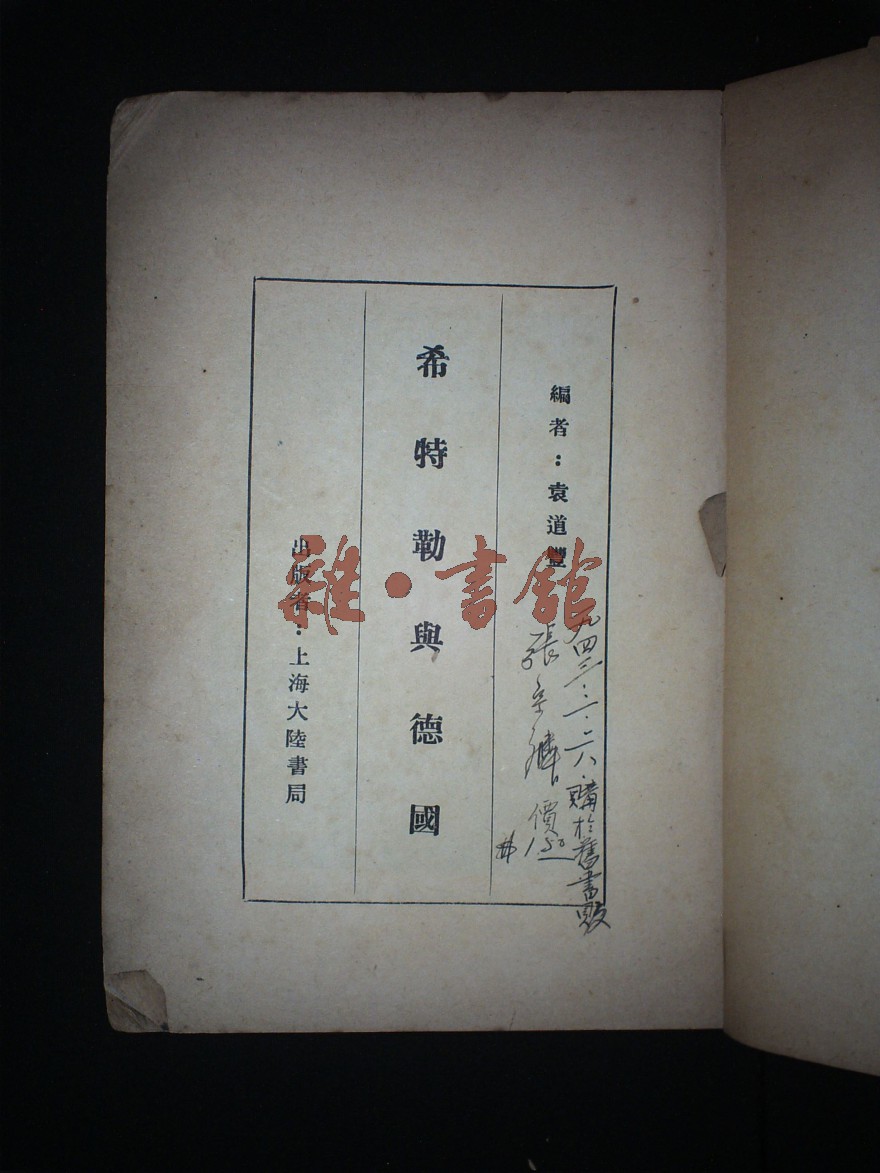 編者：袁道豐
希特勒與德國
出版者：上海大陸書局
雜·書館
九四三·二·二八·購於舊書販
張
價
150